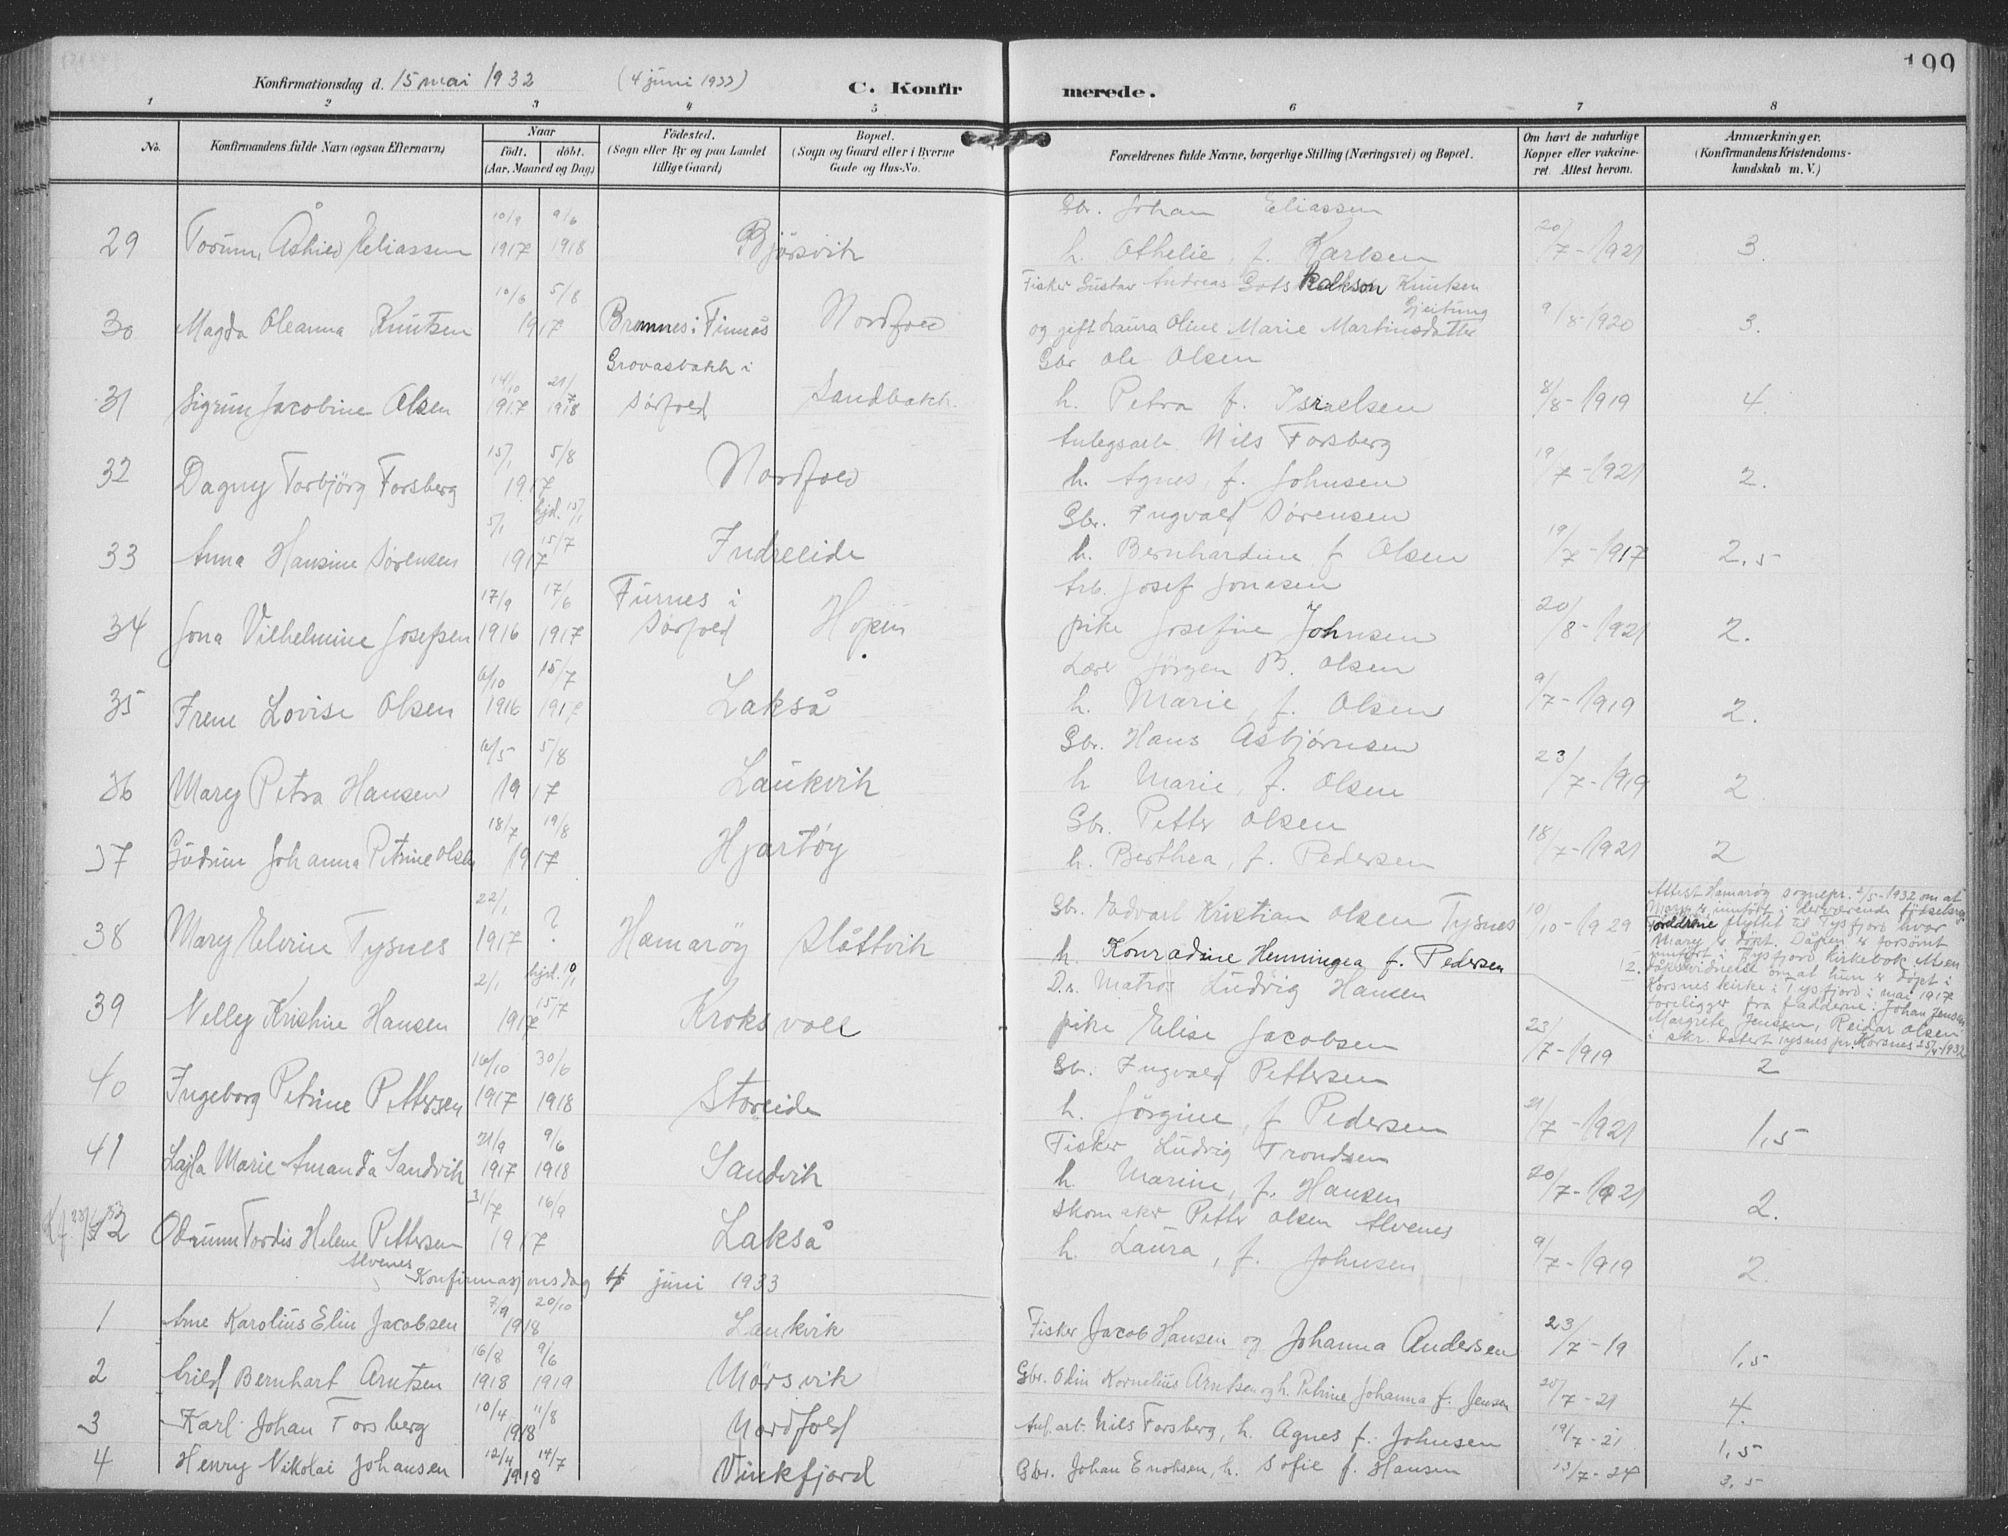 199
Konfirmationsdag d. 15 mai 1932 (4 juni 1933) C. Konfirmerede.
1 2 3 4 5 6 7 8
No.
Konfirmandens fulde Navn (ogsaa Efternavn)
Naar
født. døbt.
(Aar, Maaned og Dag)
Fødested.
(Sogn eller By og paa Landet
tillige Gaard)
Bopæl.
(Sogn og Gaard eller i Byerne
Gade og Hus-No.
Forældrenes fulde Navne, borgerlige Stilling (Næringsvei) og Bopæl.
Om havt de naturlige
Kopper eller vakcine-
ret. Attest herom.
Anmærkninger.
(Konfirmandens Kristendoms-
kundskab m. V.)
29 Torunn Åshild Eliassen 10/9 1917 9/6 1918 Bjørsvik
Gbr. Johan Eliassen
h. Othelie, f. Karlsen 20/7-1921 3.
30 Magda Oleanna Knutsen 10/6 5/8 1917 Bremnes i Finnøs Nordfold
Fisker Gustav Andreas Gotskalkson Knutsen
Gjeitung
og gift Laura Oline Marie Martinsdatter 9/8-1920 3.
31 Sigrun Jacobine Olsen 14/10 1917 21/7 1918 Grovasbakk i
Sørfold Sandbakk.
Gbr Ole Olsen
h. Petra f. Israelsen 8/8-1919 4.
32 Dagny Torbjörg Forsberg 15/1 5/8 1917 Nordfold
Anlegsarb. Nils Forsberg
h. Agnes, f. Johnsen 19/7-1921 2.
33 Anna Hansine Sørensen 5/1 hjd. 15/1 15/7 1917 Indreeide
Gbr. Ingvald Sørensen
h. Bernhardine f Olsen 19/7-1917 2,5
34 Jona Vilhelmine Josefsen 17/9 1916 17/6 1917 Furnes i
Sørfold Hopen
Arb. Josef Jonasen
pike Josefine Johnsen 20/8-1921 2.
35 Irene Lovise Olsen 6/10 1916 15/7 1917 Lakså
Lærer Jörgen B. Olsen
h. Marie, f. Olsen 9/7-1919 2.
36 Mary Petra Hansen 6/5 5/8 1917 Laukvik
Gbr. Hans Asbjørnsen
h Marie, f. Olsen 23/7-1919 2
37 Gudrun Johanna Petrine Olsen 18/7 19/8 1917 Hjartøy
Gbr. Petter Olsen
h. Berthea, f. Pedersen 18/7-1921 2
38 Mary Elvine Tysnes 22/1 1917 ? Hamarøy Slåttvik
Gbr. Edvart Kristian Olsen Tysnes 10/10-1929
h. Konradine Henningea f. Pedersen 2.
Attest Hamarøy sognepr. 2/5-1932 om at
Mary er innført i derværende fødselsreg.
Foreldrene flyttet til Tysfjord hvor
Mary er døpt. Dåpen er forsømt
innført i Tysfjord kirkebok. Men
dåpsvidnesbe om at hun er døpt i
Korsnes kirke i Tysfjord i mai 1917
foreligger fra fadderne: Johan Jensen
Margrete Jensen, Reidar Olsen
i skr. datert Tysnes pr. Korsnes 25/4-1932
39 Nelly Kristine Hansen 2/1 hjd. 10/1 15/7 1917 Kroksvoll
D.s. Matros Ludvig Hansen
pike Elise Jacobsen 23/7-1919 2
40 Ingeborg Petrine Pettersen 16/10 1917 30/6 1918 Storeide
Gbr. Ingvald Pettersen
h. Jörgine, f Pedersen 21/7-1921 1,5
41 Lajla Marie Amanda Sandvik 21/9 1917 9/6 1918 Sandvik
Fisker Ludvig Trondsen
h Marine, f. Hansen 20/7-1921 2.
42 Odrunn Tordis Helene Pettersen
Alvenes 31/7 16/9 1917 Lakså
Skomaker Petter Olsen Alvenes
h. Laura, f. Johnsen 9/7-1919 2.
Konfirmasjonsdag 4 juni 1933
1 Arne Karolius Elin Jacobsen 7/9 20/10 1918 Laukvik Fisker Jacob Hansen og Johanna Andersen 23/7-19 1,5
2 Arild Bernhart Arntsen 16/8 1918 9/6 1919 Mørsvik Gbr. Odin Kornelius Arntsen og h. Petrine Johanna f. Jensen 20/7-21 4.
3 Karl Johan Forsberg 10/4 11/8 1918 Nordfold Anl. arb. Nils Forsberg, h. Agnes f. Johnsen 19/7-21 1,5
4 Henry Nikolai Johansen 12/4 14/7 1918 Vinkfjord Gbr. Johan Enoksen, h. Sofie f. Hansen 13/7-24 3,5